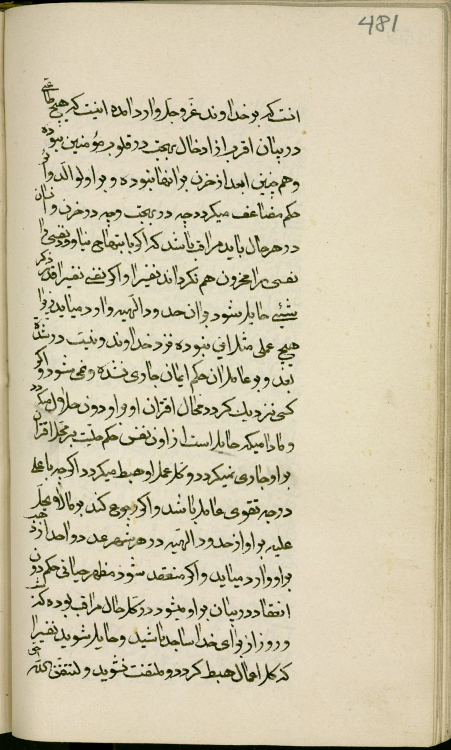 481
انست که بر خداوند عز وجل وارد آمده اینست که هیچ طاعتی
در بیان اقرب از ادخال بهجت در قلوب مؤمنین نبوده
و همچنین ابعد از حزن بر انها نبوده و بر اولو الدوائر
حکم مضاعف میگردد چه در بهجت و چه در حزن و انسان
در هر حال باید مراقب باشد که اگر بابتهاج نیاورد نفسی را
نفسی را محزون هم نگرداند
شیئی حایل شود بر ان حدود الهیه وارد میاید زیرا
هیچ عملی مثل این نبوده نزد خداوند و نیست در شدة
بعد و بر عامل ان حکم ایمان جاری نشده و نمی شود و اگر
کسی نزدیک گردد محال اقتران او و او دون حلال میگردد
و مادامیکه حایل است از او نفس حکم حلیت بر محل اقتران
بر او جاری نمیگردد و کل عمل او هبط میگردد اگر چه باعلی
درجه تقوی عامل باشد و اگر رجوع کند بر مالا یحل
علیه بر او از حدود الهیه در هر شهر عدد واحد از ذهب
بر او وارد میاید و اگر منعقد شود مظهر حیاتی حکم دون
انعقاد در بیان بر او میشود در کل حال مراقب بوده که شب
و روز از برای خدا ساجد باشید و حایل شوید نفسی را
که کل اعمال هبط گردد و ملتفت نشوید و لتتقن الله